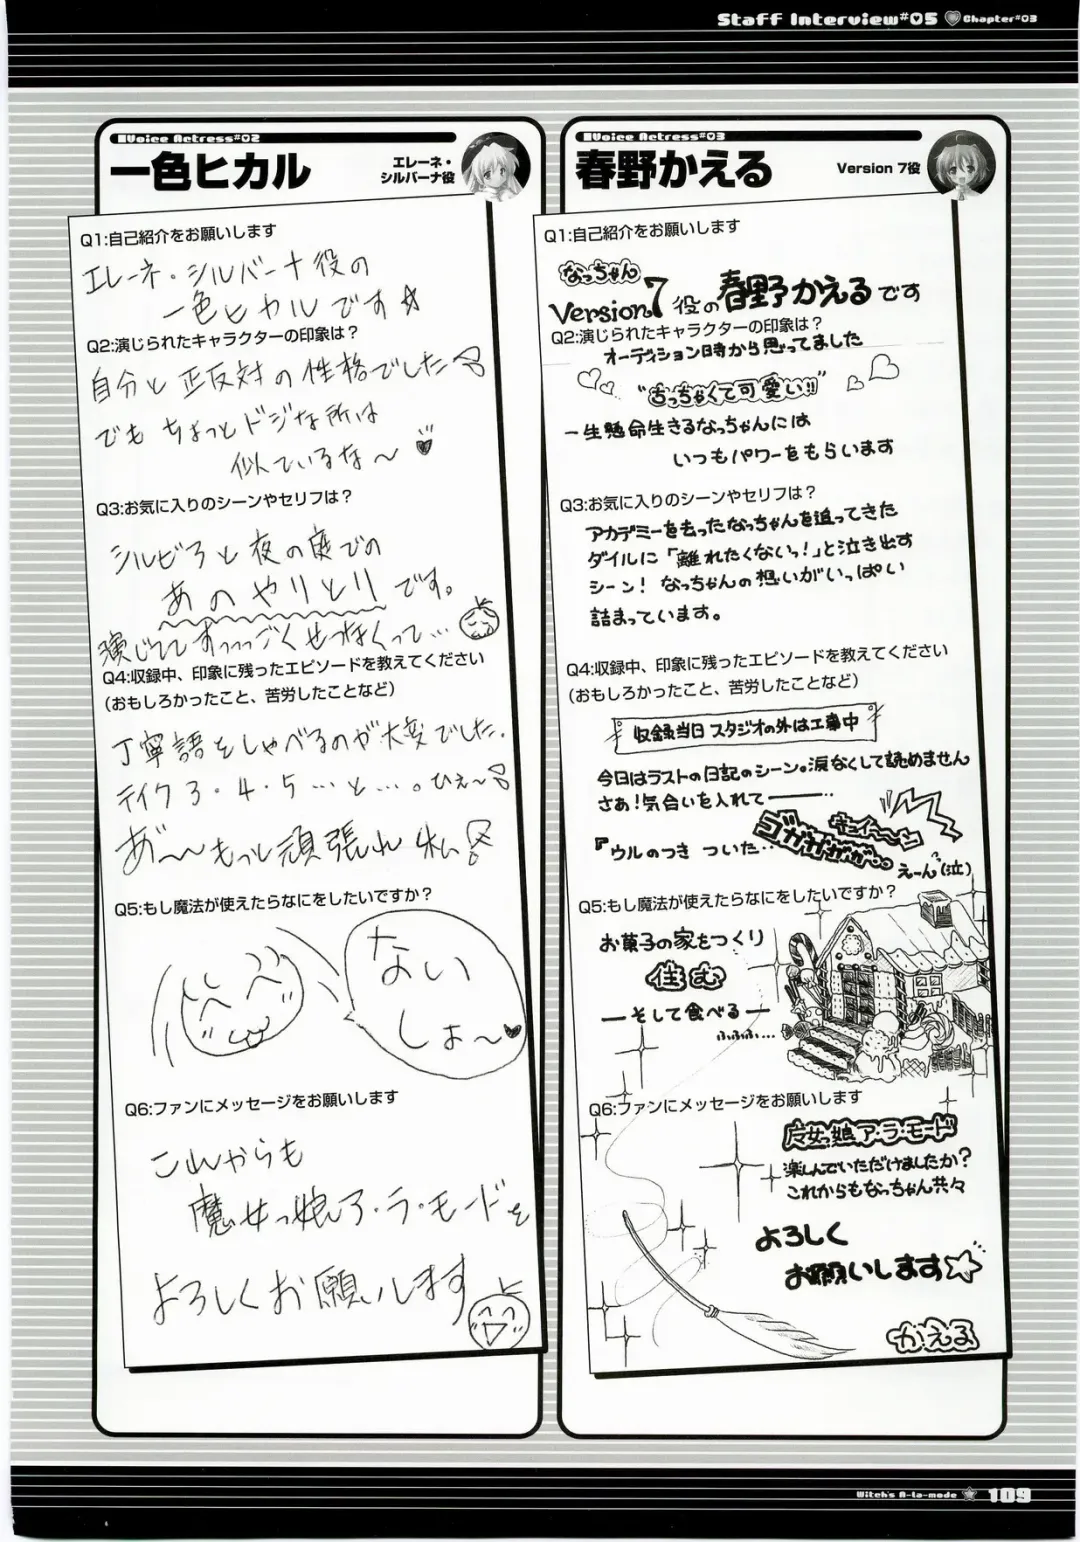 Staff Interview#05 Chapter#03
Voice Actress#02
一色ヒカル
エレーネ・
シルバーナ役
Q1:自己紹介をお願いします
エレーネ・シルバーナ役の
一色ヒカルです☆
Q2:演じられたキャラクターの印象は?
自分と正反対の性格でした
でもちょっとドジな所は
似ているな〜♥
Q3:お気に入りのシーンやセリフは?
シルビアと夜の庭での
あのやりとりです。
演じててすっっっごくせつなくって…
Q4:収録中、印象に残ったエピソードを教えてください
(おもしろかったこと、苦労したことなど)
丁寧語をしゃべるのが大変でした。
テイク3・4・5…と…。ひぇ〜
あ゛〜〜もっと頑張れ私!
Q5:もし魔法が使えたらなにをしたいですか?
ない
しょ〜♥
Q6:ファンにメッセージをお願いします
これからも
魔女っ娘ア・ラ・モードを
よろしくお願いします
Voice Actress#03
春野かえる
Version 7役
Q1:自己紹介をお願いします
なっちゃん
Version7役の春野かえるです
Q2:演じられたキャラクターの印象は?
オーディション時から思ってました
"ちっちゃくて可愛い!!"
一生懸命生きるなっちゃんには
いつもパワーをもらいます
Q3:お気に入りのシーンやセリフは?
アカデミーを去ったなっちゃんを追ってきた
ダイルに「離れたくないっ!」と泣き出す
シーン! なっちゃんの想いがいっぱい
詰まっています。
Q4:収録中、印象に残ったエピソードを教えてください
(おもしろかったこと、苦労したことなど)
収録当日 スタジオの外は工事中
今日はラストの日記のシーン。涙なくして読めません
さあ!気合いを入れて―――…
『ウルのつき ついた…
ゴガガガガガ…
キュイーーン
えーん(泣)
Q5:もし魔法が使えたらなにをしたいですか?
お菓子の家をつくり
住む
―そして食べる―
ふふふふ…
Q6:ファンにメッセージをお願いします
魔女っ娘ア・ラ・モード
楽しんでいただけましたか?
これからもなっちゃん共々
よろしく
お願いします☆
かえる
Witch's A-la-mode 109